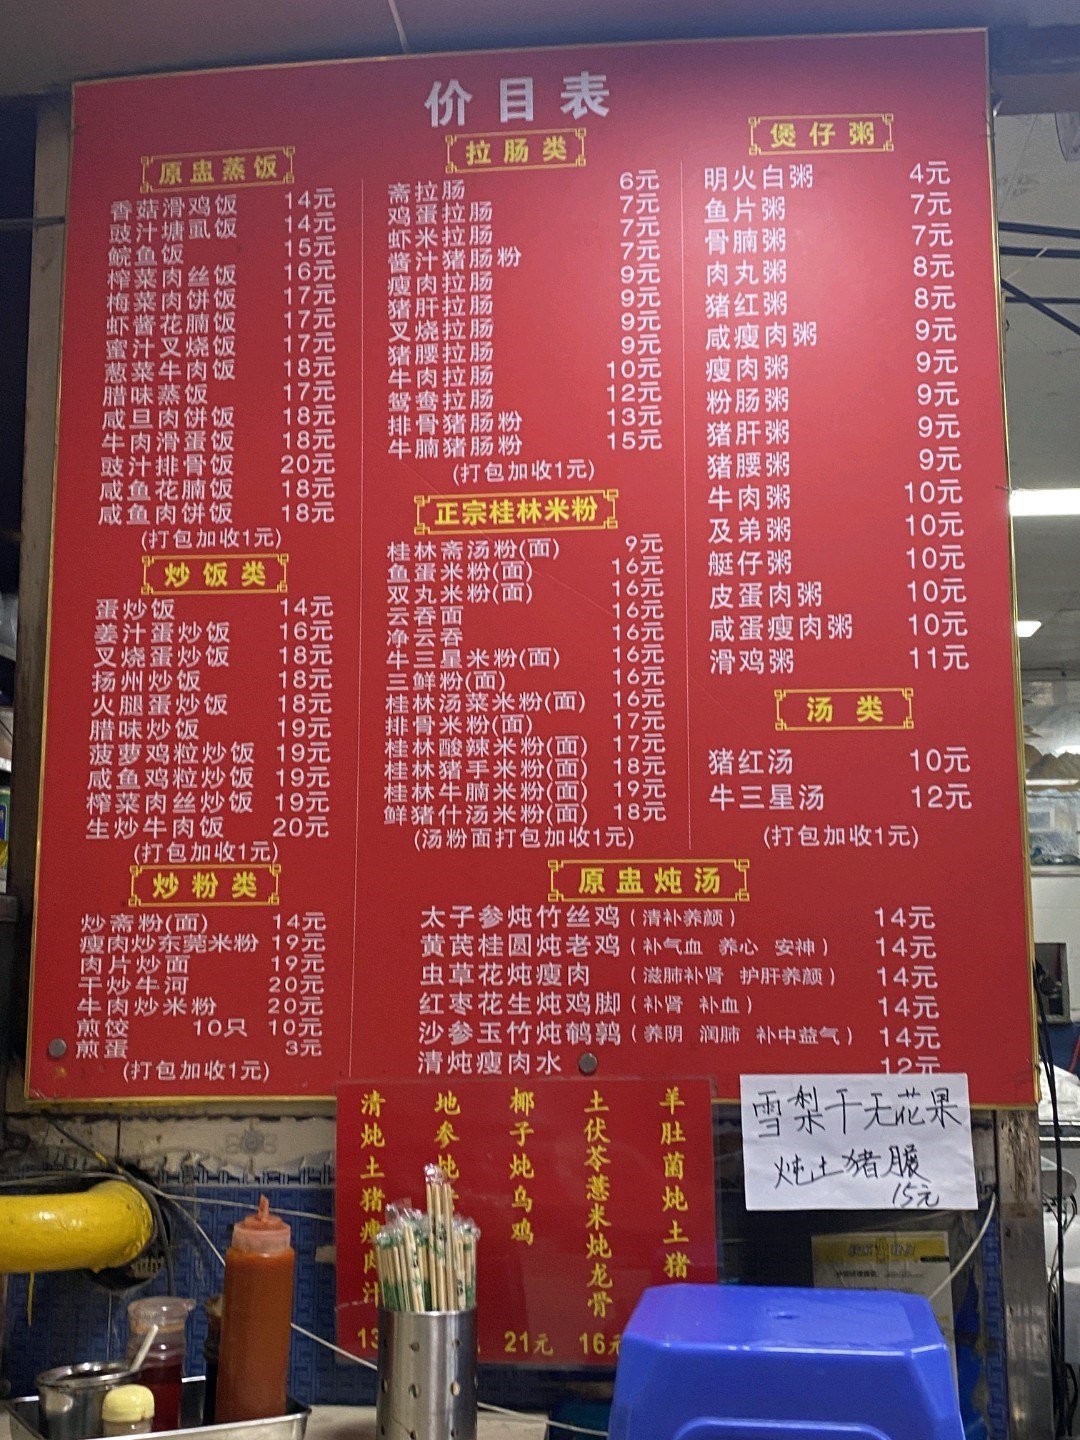 价目表
原盅蒸饭
香菇滑鸡饭 14元
豉汁塘虱饭 14元
鲩鱼饭 15元
榨菜肉丝饭 16元
梅菜肉饼饭 17元
虾酱花腩饭 17元
蜜汁叉烧饭 17元
葱菜牛肉饭 18元
腊味蒸饭 17元
咸旦肉饼饭 18元
牛肉滑蛋饭 18元
豉汁排骨饭 20元
咸鱼花腩饭 18元
咸鱼肉饼饭 18元
(打包加收1元)
炒饭类
蛋炒饭 14元
姜汁蛋炒饭 16元
叉烧蛋炒饭 18元
扬州炒饭 18元
火腿蛋炒饭 18元
腊味炒饭 19元
菠萝鸡粒炒饭 19元
咸鱼鸡粒炒饭 19元
榨菜肉丝炒饭 19元
生炒牛肉饭 20元
(打包加收1元)
炒粉类
炒斋粉(面) 14元
瘦肉炒东莞米粉 19元
肉片炒面 19元
干炒牛河 20元
牛肉炒米粉 20元
煎饺 10只 10元
煎蛋 3元
(打包加收1元)
拉肠类
斋拉肠 6元
鸡蛋拉肠 7元
虾米拉肠 7元
酱汁猪肠粉 7元
瘦肉拉肠 9元
猪肝拉肠 9元
叉烧拉肠 9元
猪腰拉肠 9元
牛肉拉肠 10元
鸳鸯拉肠 12元
排骨猪肠粉 13元
牛腩猪肠粉 15元
(打包加收1元)
正宗桂林米粉
桂林斋汤粉(面) 9元
鱼蛋米粉(面) 16元
双丸米粉(面) 16元
云吞面 16元
净云吞 16元
牛三星米粉(面) 16元
三鲜粉(面) 16元
桂林汤菜米粉(面) 16元
排骨米粉(面) 17元
桂林酸辣米粉(面) 17元
桂林猪手米粉(面) 18元
桂林牛腩米粉(面) 19元
鲜猪什汤米粉(面) 18元
(汤粉面打包加收1元)
煲仔粥
明火白粥 4元
鱼片粥 7元
骨腩粥 7元
肉丸粥 8元
猪红粥 8元
咸瘦肉粥 9元
瘦肉粥 9元
粉肠粥 9元
猪肝粥 9元
猪腰粥 9元
牛肉粥 10元
及弟粥 10元
艇仔粥 10元
皮蛋肉粥 10元
咸蛋瘦肉粥 10元
滑鸡粥 11元
汤类
猪红汤 10元
牛三星汤 12元
(打包加收1元)
原盅炖汤
太子参炖竹丝鸡(清补养颜) 14元
黄芪桂圆炖老鸡(补气血 养心 安神) 14元
虫草花炖瘦肉 (滋肺补肾 护肝养颜) 14元
红枣花生炖鸡脚(补肾 补血) 14元
沙参玉竹炖鹌鹑(养阴 润肺 补中益气) 14元
清炖瘦肉水 12元
清炖土猪瘦肉汁 13
地参炖
椰子炖乌鸡 21元
土伏苓薏米炖龙骨 16元
羊肚菌炖土猪
雪梨干无花果
炖土猪𦟌
15元